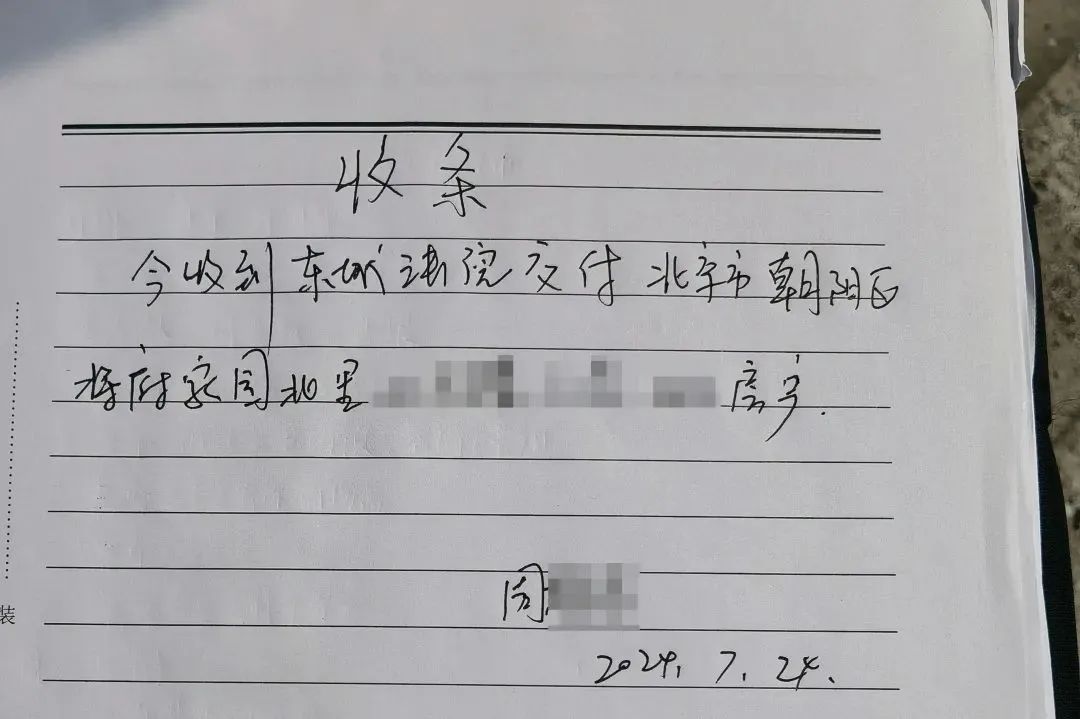 收条
今收到东城法院交付北京市朝阳区
将府家园北里房产.
周
2024.7.24.
装